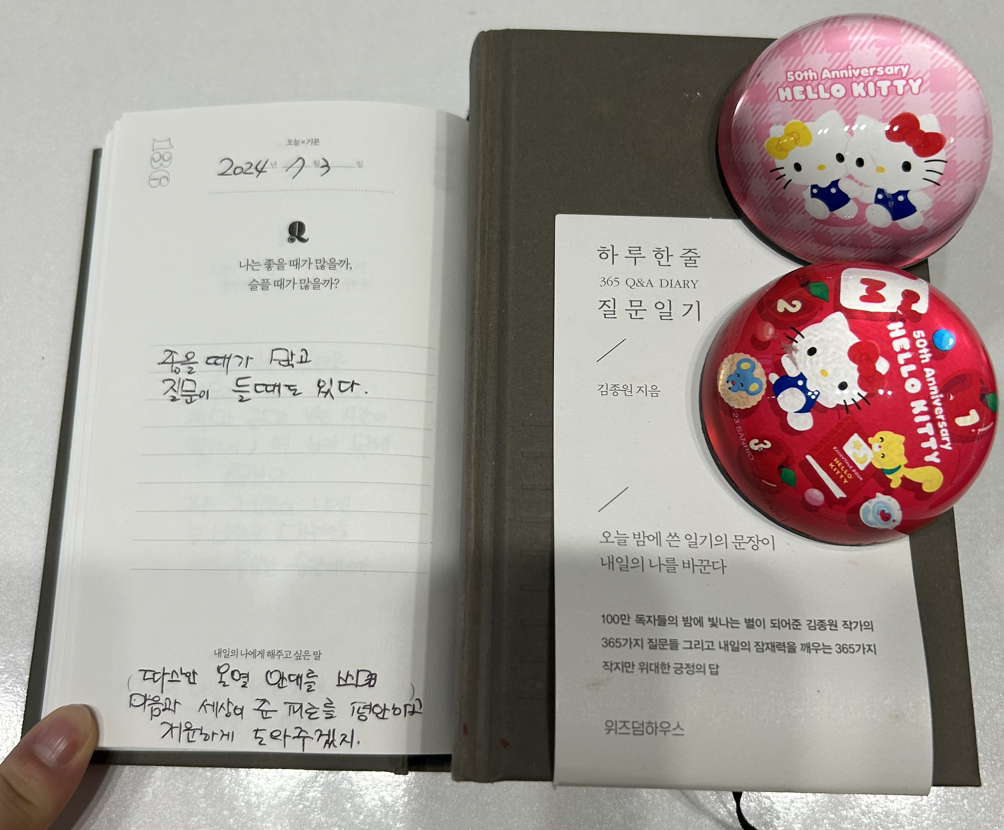 186
오늘 × 기분
2024년 7월 3일
Q
나는 좋을 때가 많을까,
슬플 때가 많을까?
좋을 때가 많고
질문이 들때도 있다.
내일의 나에게 해주고 싶은 말
따스한 온열 안대를
마음과 세상이 준 피로를 평안하고
저윤하게 도와주겠지.
하루 한 줄
365 Q&A DIARY
질문 일기
김종원 지음
오늘 밤에 쓴 일기의 문장이
내일의 나를 바꾼다
100만 독자들의 밤에 빛나는 별이 되어준 김종원 작가의
365가지 질문들 그리고 내일의 잠재력을 깨우는 365가지
작지만 위대한 긍정의 답
위즈덤하우스
50th Anniversary
HELLO KITTY
50th Anniversary
HELLO KITTY
M
2
1
3
HELLO
KITTY